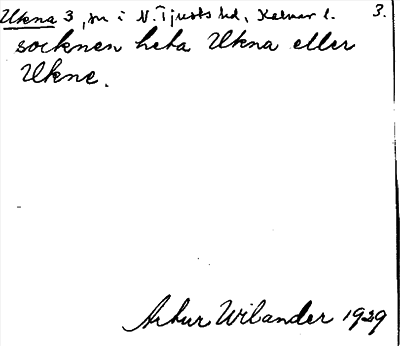 Ukna 3, sn i N. Tjusts hd, Kalmar l. 3.
socknen heta Ukna eller
Ukne.
Arhur Wilander 1929